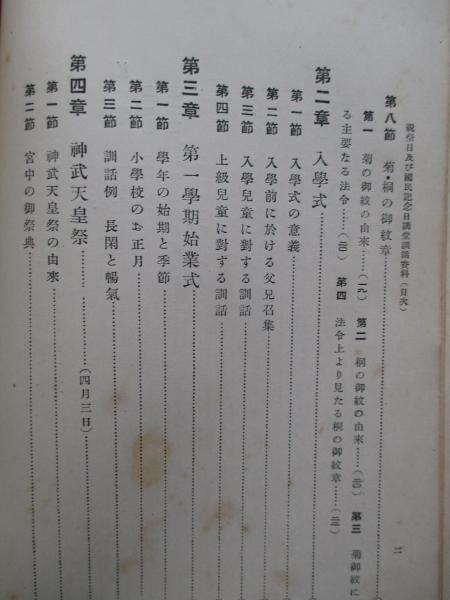 祝祭日及び國民記念日講堂訓話資料（目次）
二
第八節 菊・桐の御紋章
第一 菊の御紋の由來……（一九） 第二 桐の御紋の由來……（二〇） 第三 菊御紋に
る主要なる法令……（二二） 第四 法令上より見たる桐の御紋章……（二三）
第二章 入學式
第一節 入學式の意義
第二節 入學前に於ける父兄召集
第三節 入學兒童に對する訓話
第四節 上級兒童に對する訓話
第三章 第一學期始業式
第一節 學年の始期と季節
第二節 小學校のお正月
第三節 訓話例 長閑と暢氣
第四章 神武天皇祭……（四月三日）
第一節 神武天皇祭の由來
第二節 宮中の御祭典